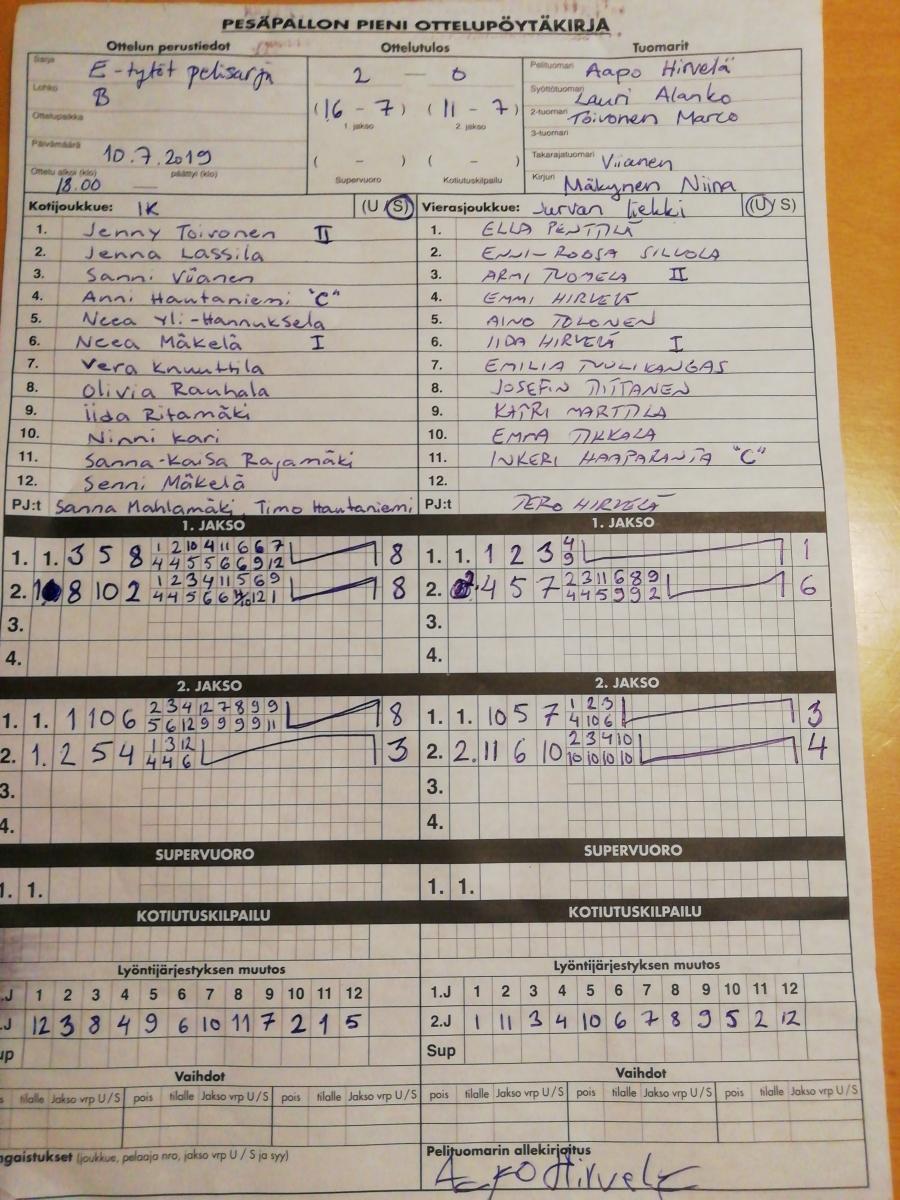 PESÄPALLON PIENI OTTELUPÖYTÄKIRJA
Ottelun perustiedot Ottelutulos Tuomarit
Sarja E-tytöt pelisarja
Lohko B
Ottelupaikka
Päivämäärä 10.7.2019
Ottelu alkoi (klo) 18.00 — päättyi (klo)
2 — 0
(16 - 7) (11 - 7)
1. jakso 2. jakso
( - ) ( - )
Supervuoro Kotiutuskilpailu
Pelituomari Aapo Hirvelä
Syöttötuomari Lauri Alanko
2-tuomari Toivonen Marco
3-tuomari
Takarajatuomari Viianen
Kirjuri Mäkynen Niina
Kotijoukkue: IK (U / S) Vierasjoukkue: Jurvan Liekki (U / S)
1. Jenny Toivonen II 1. ELLA PENTTILÄ
2. Jenna Lassila 2. ENNI-ROOSA SILLOLA
3. Sanni Viianen 3. ARMI TUOMELA II
4. Anni Hautaniemi "C" 4. EMMI HIRVELÄ
5. Neea Yli-Hannuksela 5. AINO TOLONEN
6. Neea Mäkelä I 6. IIDA HIRVELÄ I
7. Vera Knuuttila 7. EMILIA TUULIKANGAS
8. Olivia Rauhala 8. JOSEFIN TIITTANEN
9. Iida Ritamäki 9. KATRI MARTTILA
10. Ninni Kari 10. EMMA TIKKALA
11. Sanna-Kaisa Rajamäki 11. INKERI HAAPARANTA "C"
12. Senni Mäkelä 12.
PJ:t Sanna Mahlamäki, Timo Hautaniemi PJ:t TERO HIRVELÄ
1. JAKSO 1. JAKSO
1. 1. 3 5 8 1 2 10 4 11 6 6 7 8 1. 1. 1 2 3 4 1
4 4 5 5 6 6 9 12 9
2. 8 10 2 1 2 3 4 11 5 6 9 8 2. 4 5 7 2 3 11 6 8 9 6
4 4 5 6 6 12 1 4 4 5 9 9 2
3. 3.
4. 4.
2. JAKSO 2. JAKSO
1. 1. 1 10 6 2 3 4 12 7 8 9 9 8 1. 1. 10 5 7 1 2 3 3
5 6 12 9 9 9 9 11 4 10 6
2. 1. 2 5 4 1 3 12 3 2. 2. 11 6 10 2 3 4 10 4
4 4 6 10 10 10 10
3. 3.
4. 4.
SUPERVUORO SUPERVUORO
1. 1. 1. 1.
KOTIUTUSKILPAILU KOTIUTUSKILPAILU
Lyöntijärjestyksen muutos Lyöntijärjestyksen muutos
.J 1 2 3 4 5 6 7 8 9 10 11 12 1.J 1 2 3 4 5 6 7 8 9 10 11 12
.J 12 3 8 4 9 6 10 11 7 2 1 5 2.J 1 11 3 4 10 6 7 8 9 5 2 12
up Sup
Vaihdot Vaihdot
s tilalle Jakso vrp U / S pois tilalle Jakso vrp U / S pois tilalle Jakso vrp U / S pois tilalle Jakso vrp U / S pois tilalle Jakso vrp U / S pois tilalle Jakso vrp U / S
ngaistukset (joukkue, pelaaja nro, jakso vrp U / S ja syy) Pelituomarin allekirjoitus
Aapo Hirvelä